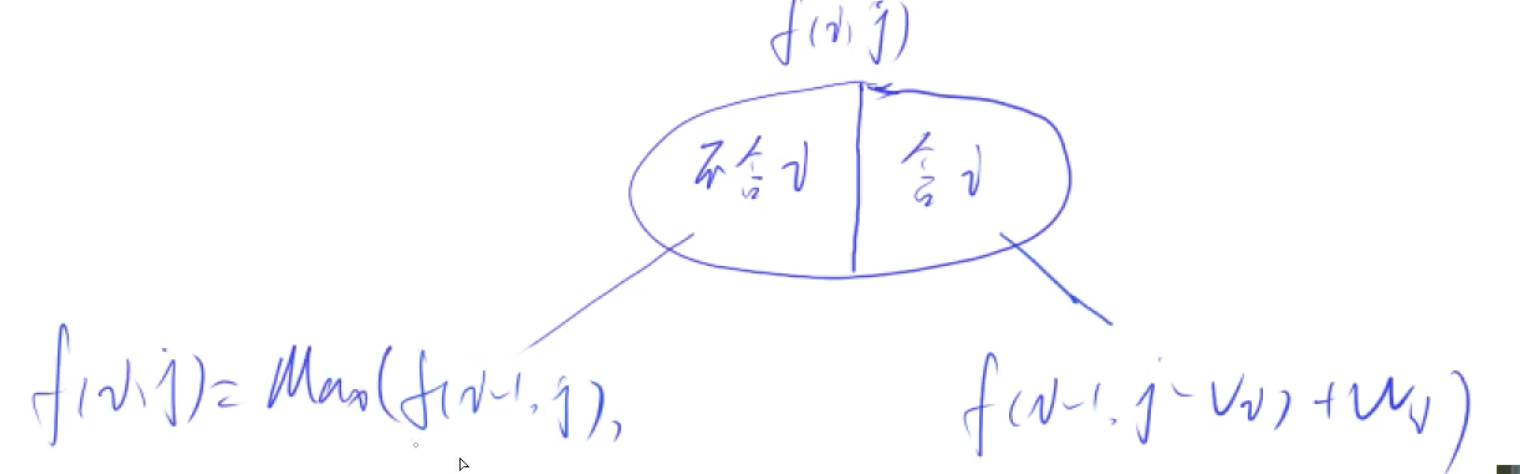 f(i,j)
不含i 含i
f(i,j)=Max(f(i-1,j), f(i-1,j-Vi)+Wi)